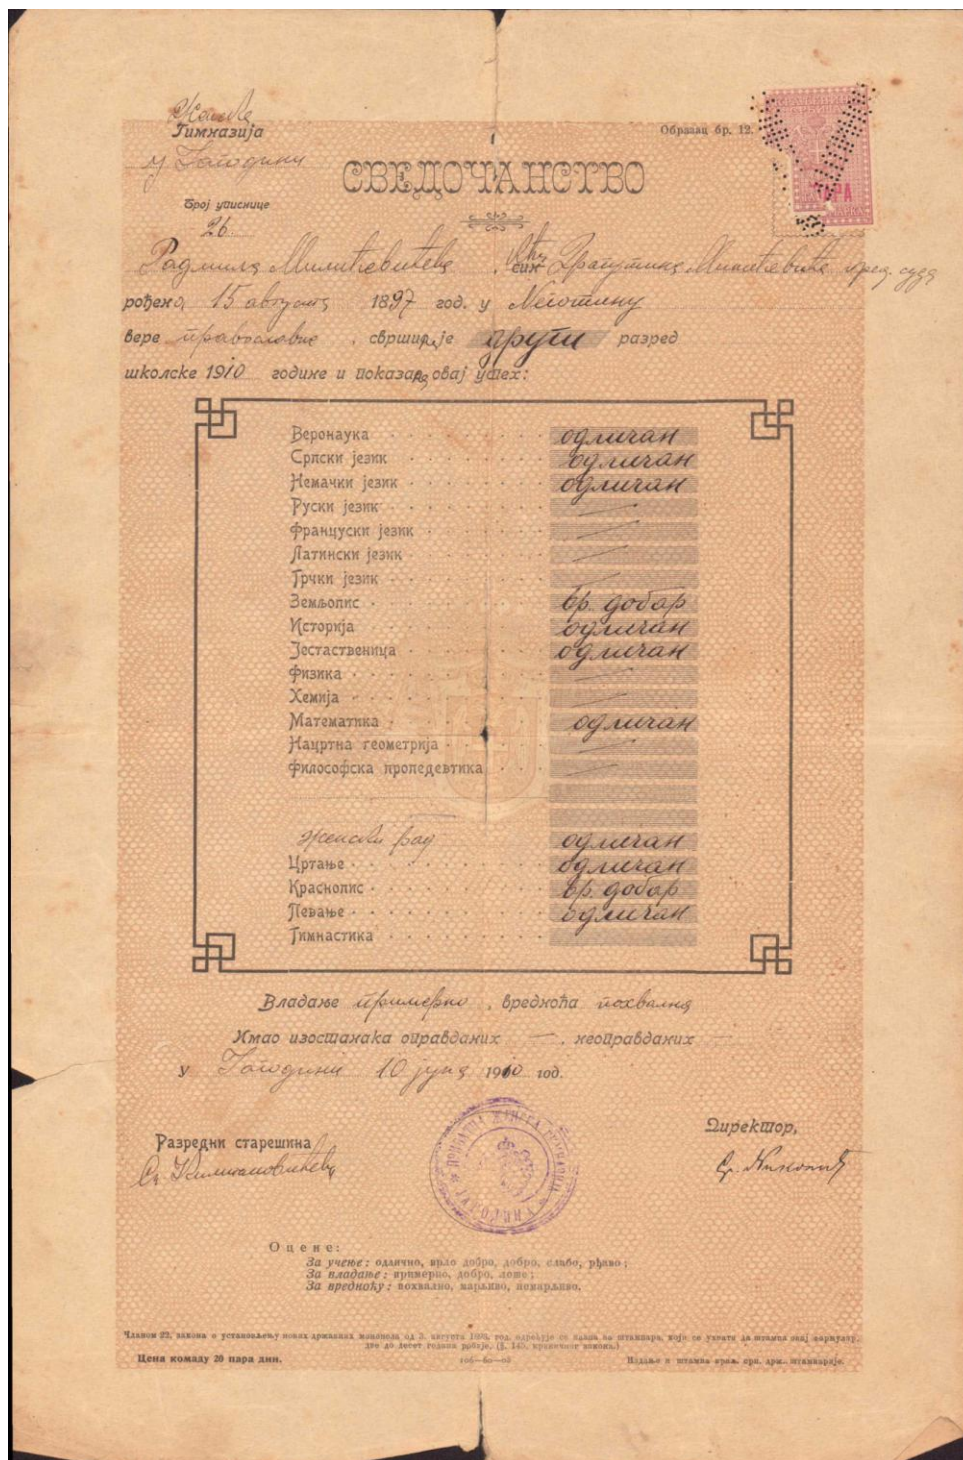 Женска
Гимназија
у Јагодини
Образац бр. 12.
СВЕДОЧАНСТВО
Број уписнице
26.
ПАРА
Радмила Милићевићева, кћи син Драгутина Милићевића пред. суда
рођена 15 августа 1897 год. у Неготину
вере православне, свршила је други разред
школске 1910 године и показала овај успех:
Веронаука одличан
Српски језик одличан
Немачки језик одличан
Руски језик —
Француски језик —
Латински језик —
Грчки језик —
Земљопис вр. добар
Историја одличан
Јестаственица одличан
Физика —
Хемија —
Математика одличан
Нацртна геометрија —
Философска пропедевтика —
Женски рад одличан
Цртање одличан
Краснопис вр. добар
Певање одличан
Гимнастика
Владање примерно, вредноћа похвална
Имао изостанака оправданих —, неоправданих —
у Јагодини 10 јуна 1910 год.
Разредни старешина
Директор,
Оцене:
За учење: одлично, врло добро, добро, слабо, рђаво;
За владање: примерно, добро, лоше;
За вредноћу: похвално, марљиво, немарљиво.
Чланом 22. закона о установљењу нових државних монопола од 3. августа 1893. год. одређује се казна за штампара, који се ухвати да штампа овај формулар,
две до десет година робије. (§. 145. кривичног закона.)
Цена комаду 20 пара дин.
Издање и штампа краљ. срп. држ. штампарије.